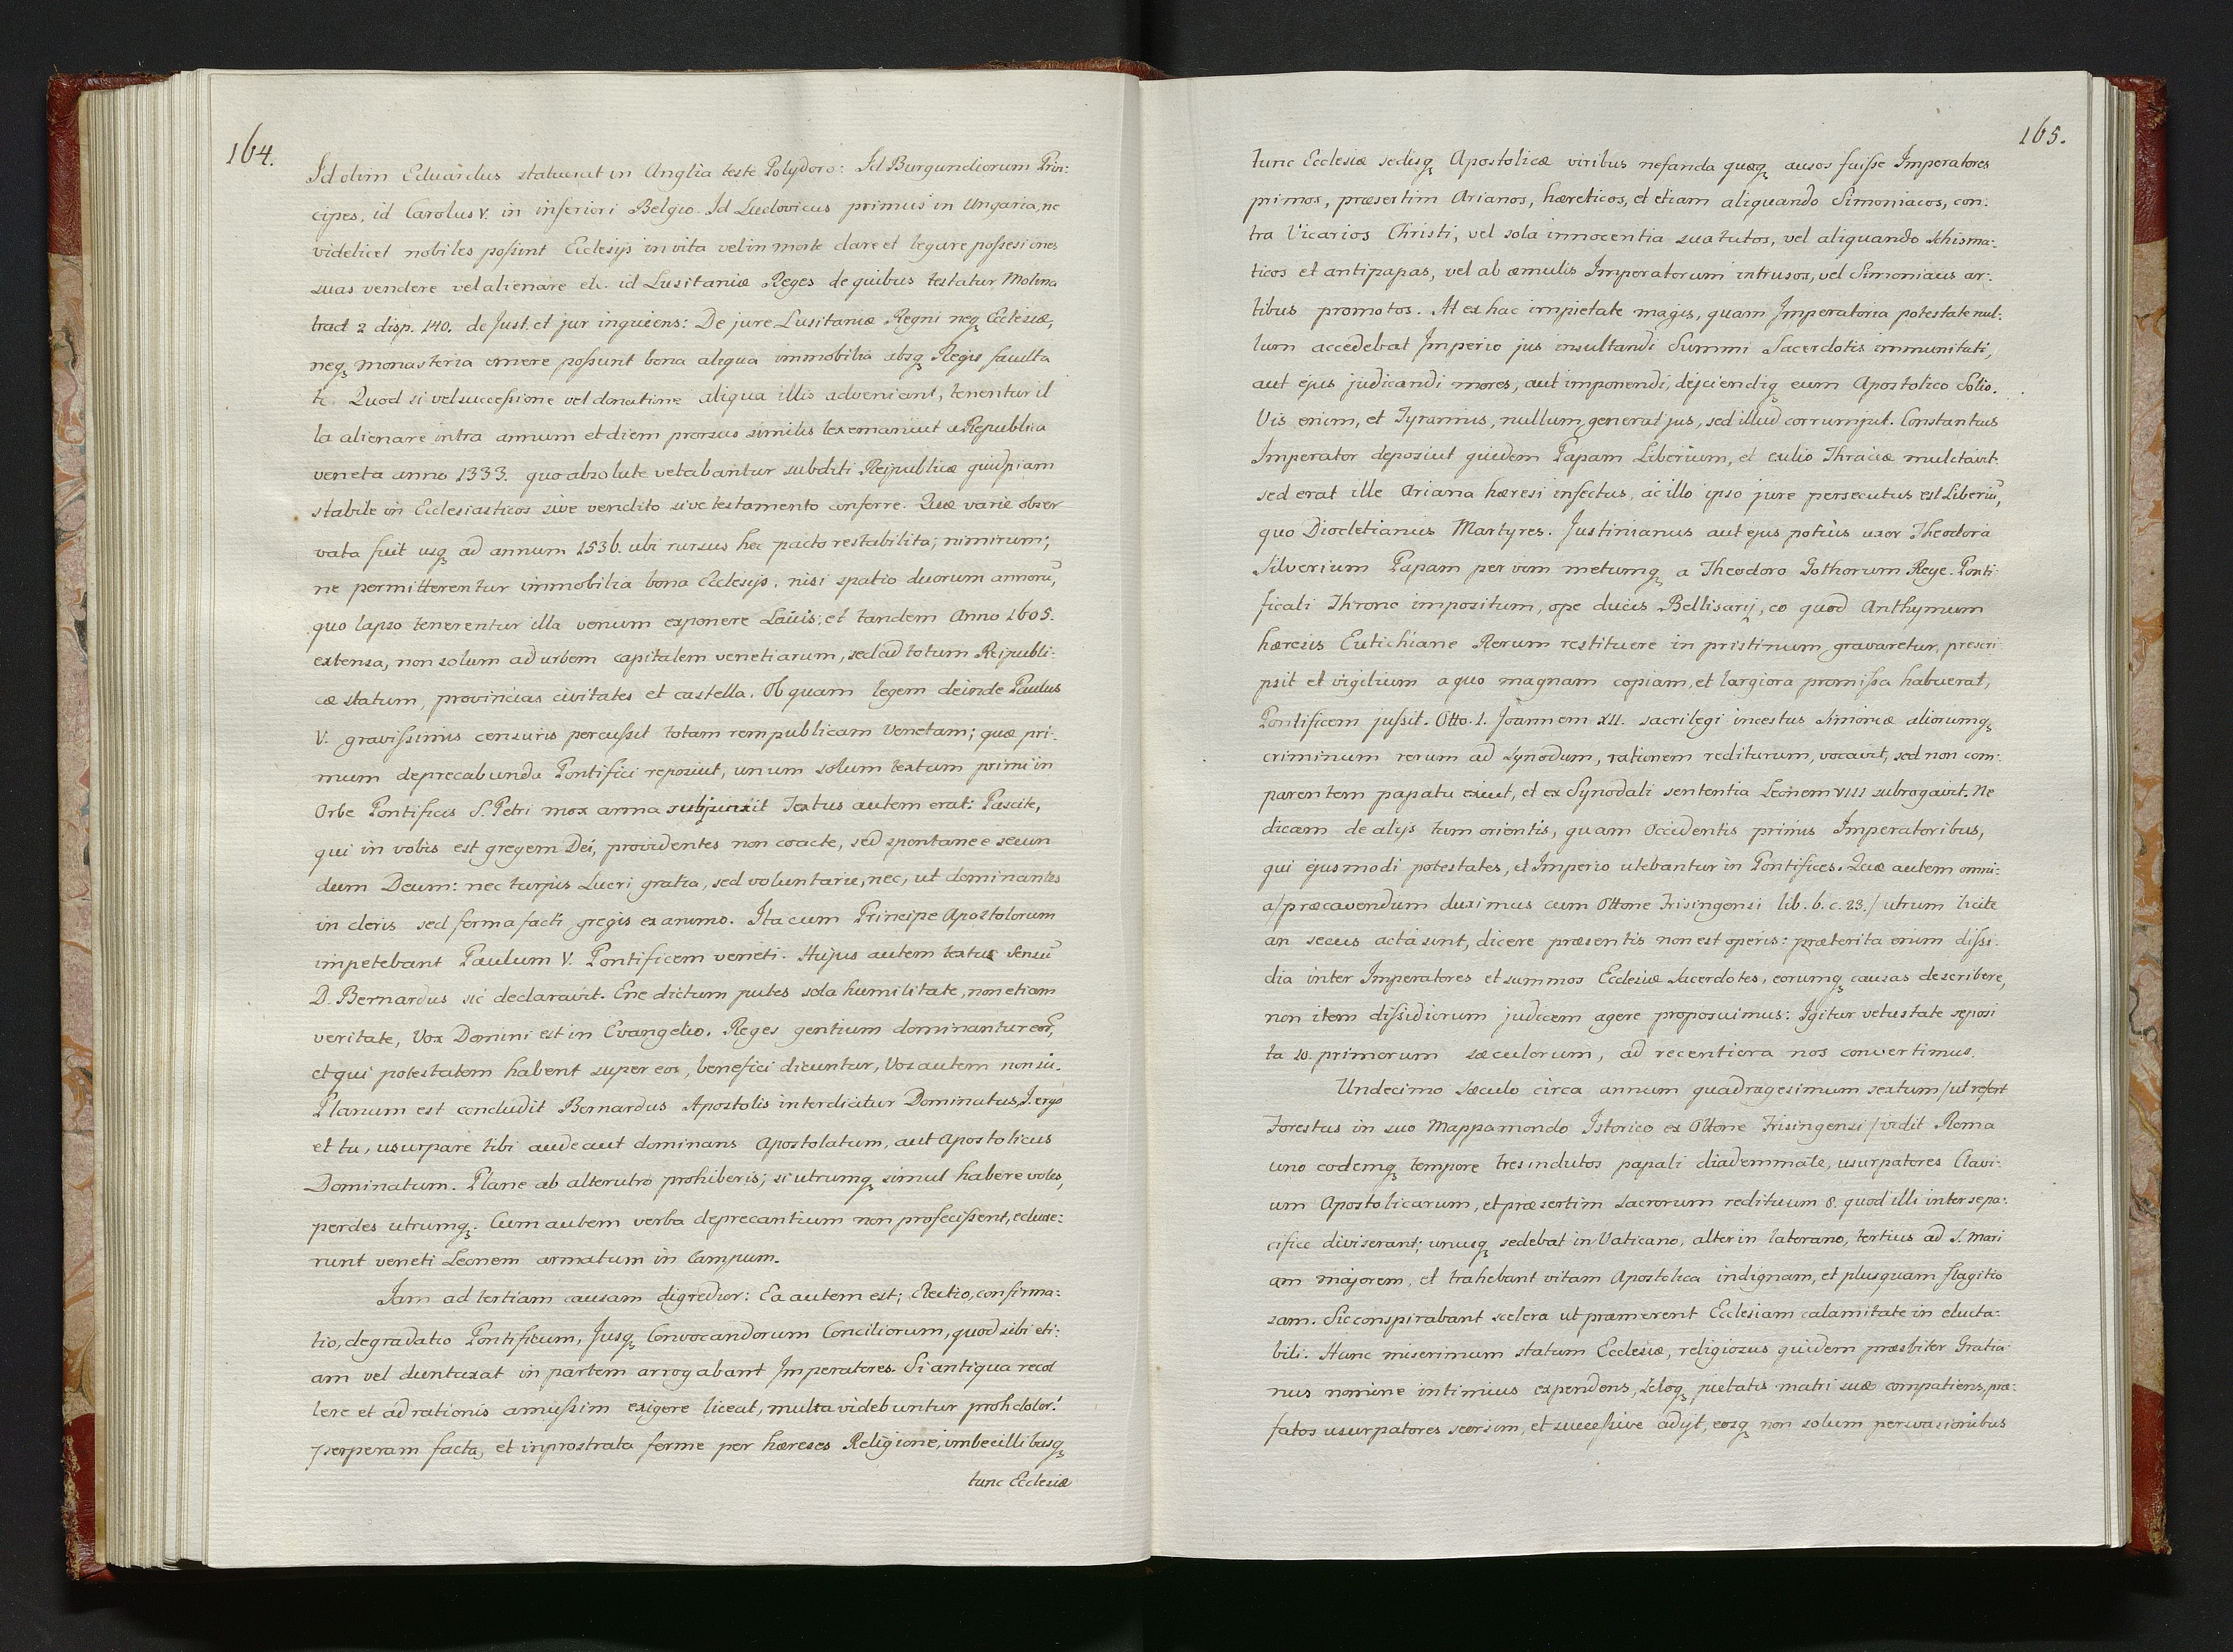 164.
Id olim Eduardus statuerat in Anglia teste Polydoro: Id Burgundiorum Prin:
cipes, id Carolus V. in inferiori Belgio. Id Ludovicus primus in Ungaria, ne
videlicet nobiles possint Ecclesijs in vita vel in morte dare et legare possesiones
suas vendere vel alienare etc. id Lusitaniæ Reges de quibus testatur Molina
tract 2 disp. 140. de Just. et jur inquiens: De jure Lusitaniæ Regni neqꝫ Ecclesiæ,
neqꝫ monasteria emere possunt bona aliqua immobilia absqꝫ Regis faculta
te. Quod si vel successione vel donatione aliqua illis adveniant, tenentur il
la alienare intra annum et diem prorsus similis lex emaniut a Republica
veneta anno 1333. quo absolute vetabantur subditi Reipublicæ quidpiam
stabile in Ecclesiasticos sive vendito sive testamento conferre. Quæ varie obser
vata fuit usqꝫ ad annum 1536. ubi rursus hec pacto restabilita; nimirum;
ne permitterentur immobilia bona Eclesijs, nisi spatio duorum annorũ,
quo lapso tenerentur illa venum exponere Laiis; et tandem Anno 1605.
extensa, non solum ad urbem capitalem venetiarum, sed ad totum Reipubli:
cæ statum, provincias civitates et castella. Ob quam legem deinde Paulus
V. gravissimis censuris percussit totam rempublicam Venetam; quæ pri:
mum deprecabunda Pontifici reposiut, unum solum textum primi in
Orbe Pontificis S. Petri mox arma subjunxit Textus autem erat: Pascite,
qui in vobis est gregem Dei, providentes non coacte, sed spontanee secun
dum Deum: nec turpis Lucri gratia, sed voluntarie, nec, ut dominantes
in cleris sed forma facti gregis ex animo. Ita cum Principe Apostolorum
impetebant Paulum V. Pontificem veneti. Hujus autem textus sensũ
D. Bernardus sic declaravit. Ene dictum putes sola humilitate, non etiam
veritate, Vox Domini est in Evangelio. Reges gentium dominantur eor̃,
et qui potestatem habent super eos, benefici dicuntur, Vos autem non sic.
Planum est concludit Bernardus Apostolis interdicitur Dominatus, I. ergo
et tu, usurpare tibi aude aut dominans Apostolatum, aut Apostolicus
Dominatum. Plane ab alterutro prohiberis; si utrumqꝫ simul habere voles,
perdes utrumqꝫ. Cum autem verba deprecantium non profecissent, eduxe:
runt veneti Leonem armatum in Campum.
Jam ad tertiam causam digredior: Ea autem est; Electio, confirma:
tio, degradatio Pontificum, Jusqꝫ Convocandorum Conciliorum, quod sibi eti:
am vel duntaxat in partem arrogabant Imperatores. Si antiqua recol
lere et ad rationis amussim exigere liceat, multa videbuntur proh dolor!
perperam facta, et in prostrata ferme per hæreses Religione, imbecillibusqꝫ
tunc Ecclesiæ
165.
tunc Ecclesiæ sedisqꝫ Apostolicæ viribus nefanda quæqꝫ ausos fuisse Imperatores
primos, præsertim Arianos, hæreticos, et etiam aliquando Simoniacos, con:
tra Vicarios Christi, vel sola innocentia sua tutos, vel aliquando schisma:
ticos et antipapas, vel ab æmulis Imperatorum intrusos, vel Simoniacis ar:
tibus promotos. At ex hac impietate magis, quam Imperatoria potestate nul:
lum accedebat Imperio jus insultandi Summi Sacerdotis immunitati,
aut ejus judicandi mores, aut imponendi, dejiciendiqꝫ eum Apostolico Solio.
Vis enim, et Tyrannis, nullum generat jus, sed illud corrumpit. Constantius
Imperator deposiut quidem Papam Liberium, et exilio Thraciæ mulctavit.
sed erat ille Ariana hæresi infectus, ac illo ipso jure persecutus est Liberiũ,
quo Diocletianus Martyres. Justinianus aut ejus potius uxor Theodora
Silverium Papam per vim metumqꝫ a Theodoro Gothorum Rege. Ponti:
ficali Throne impositum, ope ducis Bellisarij, eo quod Anthymum
hæresis Eutichiane Rerum restituere in pristinum gravaretur, prescri
psit et vigilium a quo magnam copiam, et largiora promissa habuerat,
Pontificem jussit. Otto. I. Joannem XII. sacrilegi incestus Simoniæ aliorumqꝫ
criminum rerum ad Synodum, rationem rediturum, vocavit, sed non com:
parentem papatu exiut, et ex Synodali sententia Leonem VIII subrogavit. Ne
dicam de alijs tum orientis, quam Occidentis primis Imperatoribus,
qui ejusmodi potestates, et Imperio utebantur in Pontifices. Quæ autem omni:
a/præcavendum duximus cum Ottone Frisingensi lib. 6. c. 23./ utrum licite
an secus acta sint, dicere præsentis non est operis: præterita enim dissi:
dia inter Imperatores et summos Ecclesiæ Sacerdotes, eorumqꝫ causas describere,
non item dissidiorum judicem agere proposuimus: Igitur vetustate seposi
ta 10. primorum sæculorum, ad recentiora nos convertimus.
Undecimo sæculo circa annum quadragesimum sextum /ut refert
Forestus in suo Mappamondo Istorico ex Ottone Frisingensi/ vidit Roma
uno eodemqꝫ tempore tres indutos papali diademmate, usurpatores Clavi:
um Apostolicarum, et præsertim sacrorum redituum 8. quod illi inter se pa:
cifice diviserant; unusqꝫ sedebat in Vaticano, alter in laterano, tertius ad S. Mari
am majorem, et trahebant vitam Apostolica indignam, et plusquam flagitio
sam. Sic conspirabant scelera ut præmerent Ecclesiam calamitate in elucta:
bili. Hunc miserimum statum Ecclesiæ, religiosus quidem præsbiter Gratia:
nus nomine intimius expendens, zeloqꝫ pietatis matri suæ compatiens, præ:
fatos usurpatores seorsim, et successive adijt, eosqꝫ non solum persvasionibus